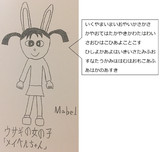 いくやまいまいおやいかさかさ
かやおてはたかやきかわたはわい
さおひはこひあよことこす
ひしよかあよはいきいさたみふお
すなたうかみはほはおもこあふ
あはかのあすき
Mabel
ウサギの女の子
「メイベルちゃん」